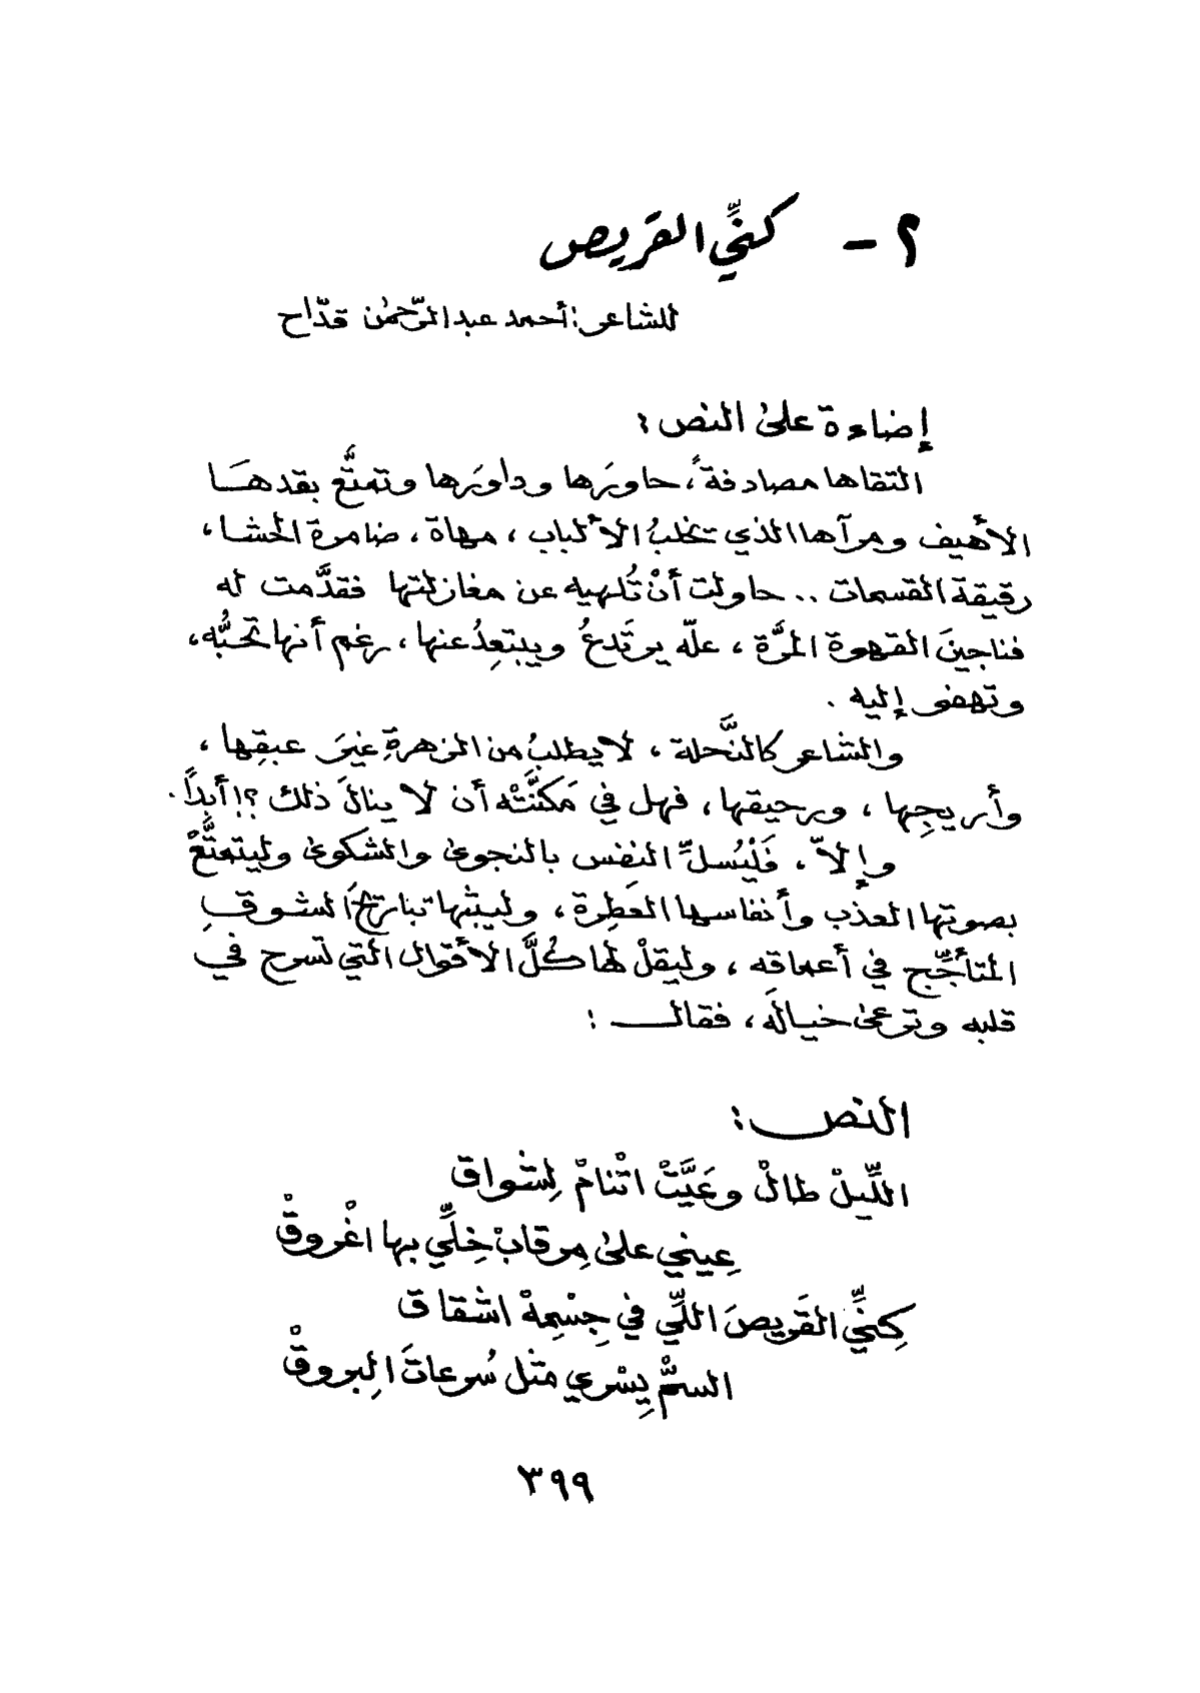 ٢ - كنِّي القريص
للشاعر: أحمد عبد الرّحمٰن قدّاح
إضاءة علىٰ النص:
التقاها مصادفةً، حاورَها وداورَها وتمتَّع بقدهَا
الأهيف ومرآها الذي تخلبُ الألباب، مهاة، ضامرة الحشا،
رقيقة القسمات .. حاولت أنْ تُلهيه عن مغازلتها فقدَّمت له
فناجينَ القهوة المرَّة، علّه يرتَدعُ ويبتعِدُ عنها، رغم أنها تحبُّه،
وتهفو إليه.
والشاعر كالنَّحلة، لا يطلبُ من الزهرةِ غيرَ عبقِها،
وأريجِها، ورحيقها، فهل في مَكنَّتْه أن لا ينالَ ذلك ؟! أبداً.
وإلاّ، فَلْيُسلِّ النفس بالنجوىٰ والشكوىٰ وليتمتَّعْ
بصوتها العذب وأنفاسها العَطِرة، وليبثها تباريحَ الشوقِ
المتأجِّج في أعماقه، وليقلْ لها كُلَّ الأقوال التي تسرح في
قلبه وترعىٰ خيالَه، فقال :
النص:
اللِّيلْ طالْ وعَيَّتْ اتْنامْ لِشواق
عِيني علىٰ مِرقابْ خِلِّي بها اغْروقْ
كِنِّي القَريصَ اللِّي في جِسْمِهْ اشقاق
السمّْ يِسْري مثل سُرعاتَ البِروقْ
٣٩٩